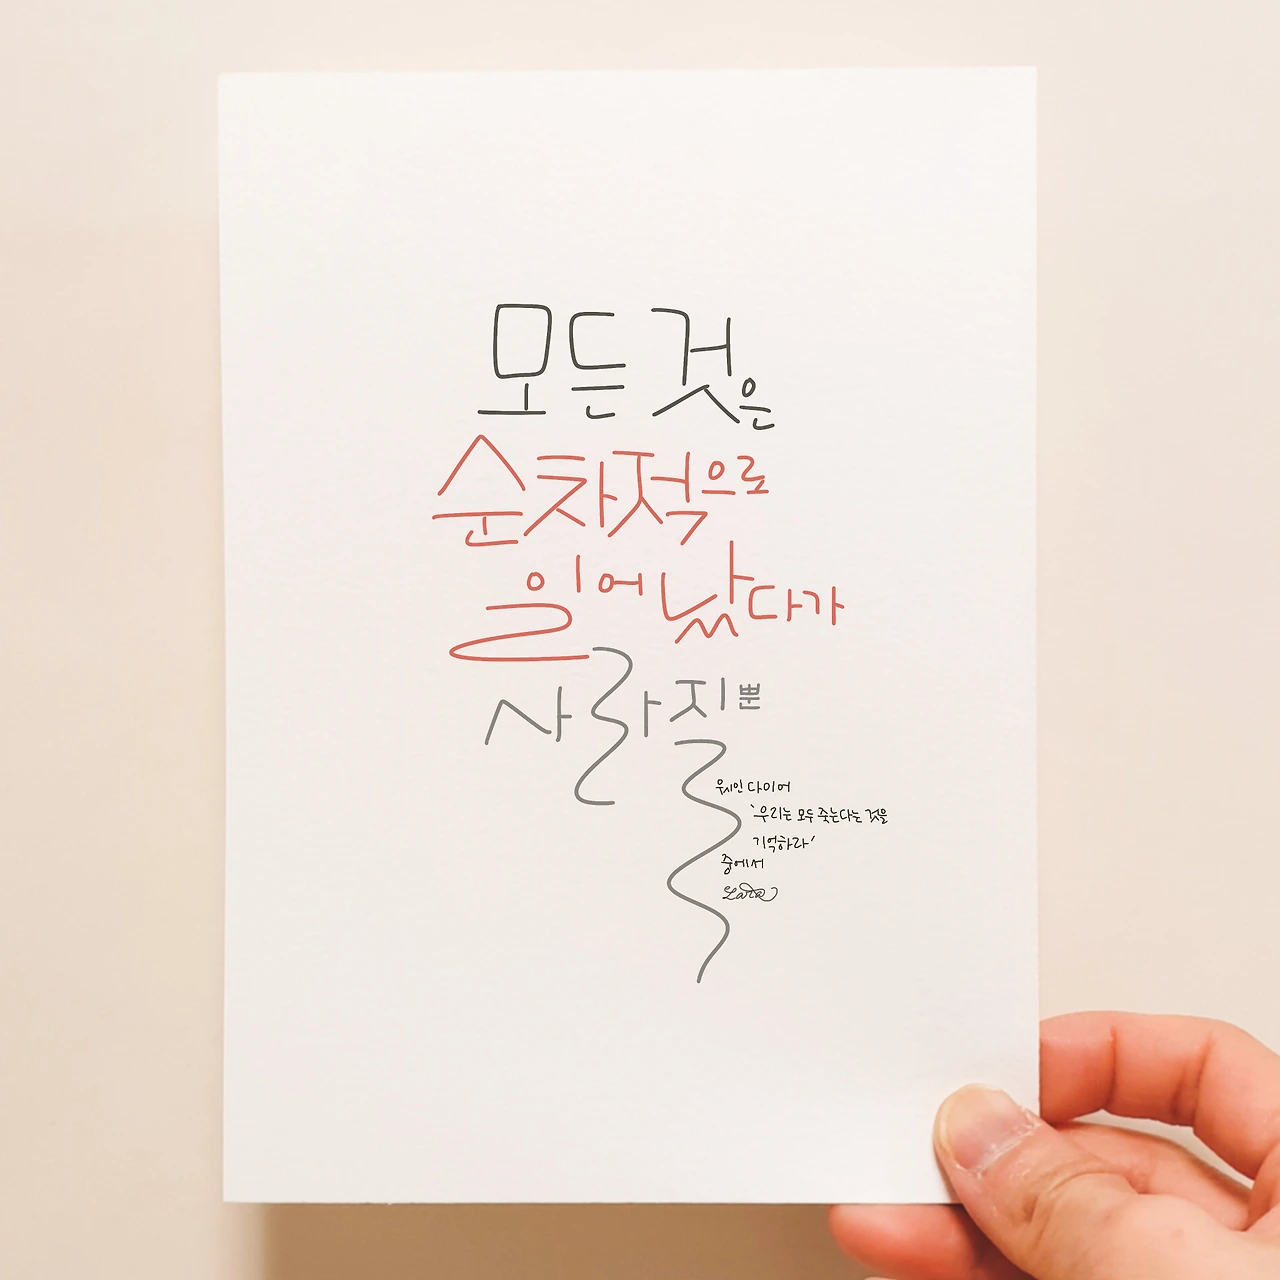 모든 것은
순차적으로
일어났다가
사라질 뿐
웨인 다이어
'우리는 모두 죽는다는 것을
기억하라'
중에서
Lara